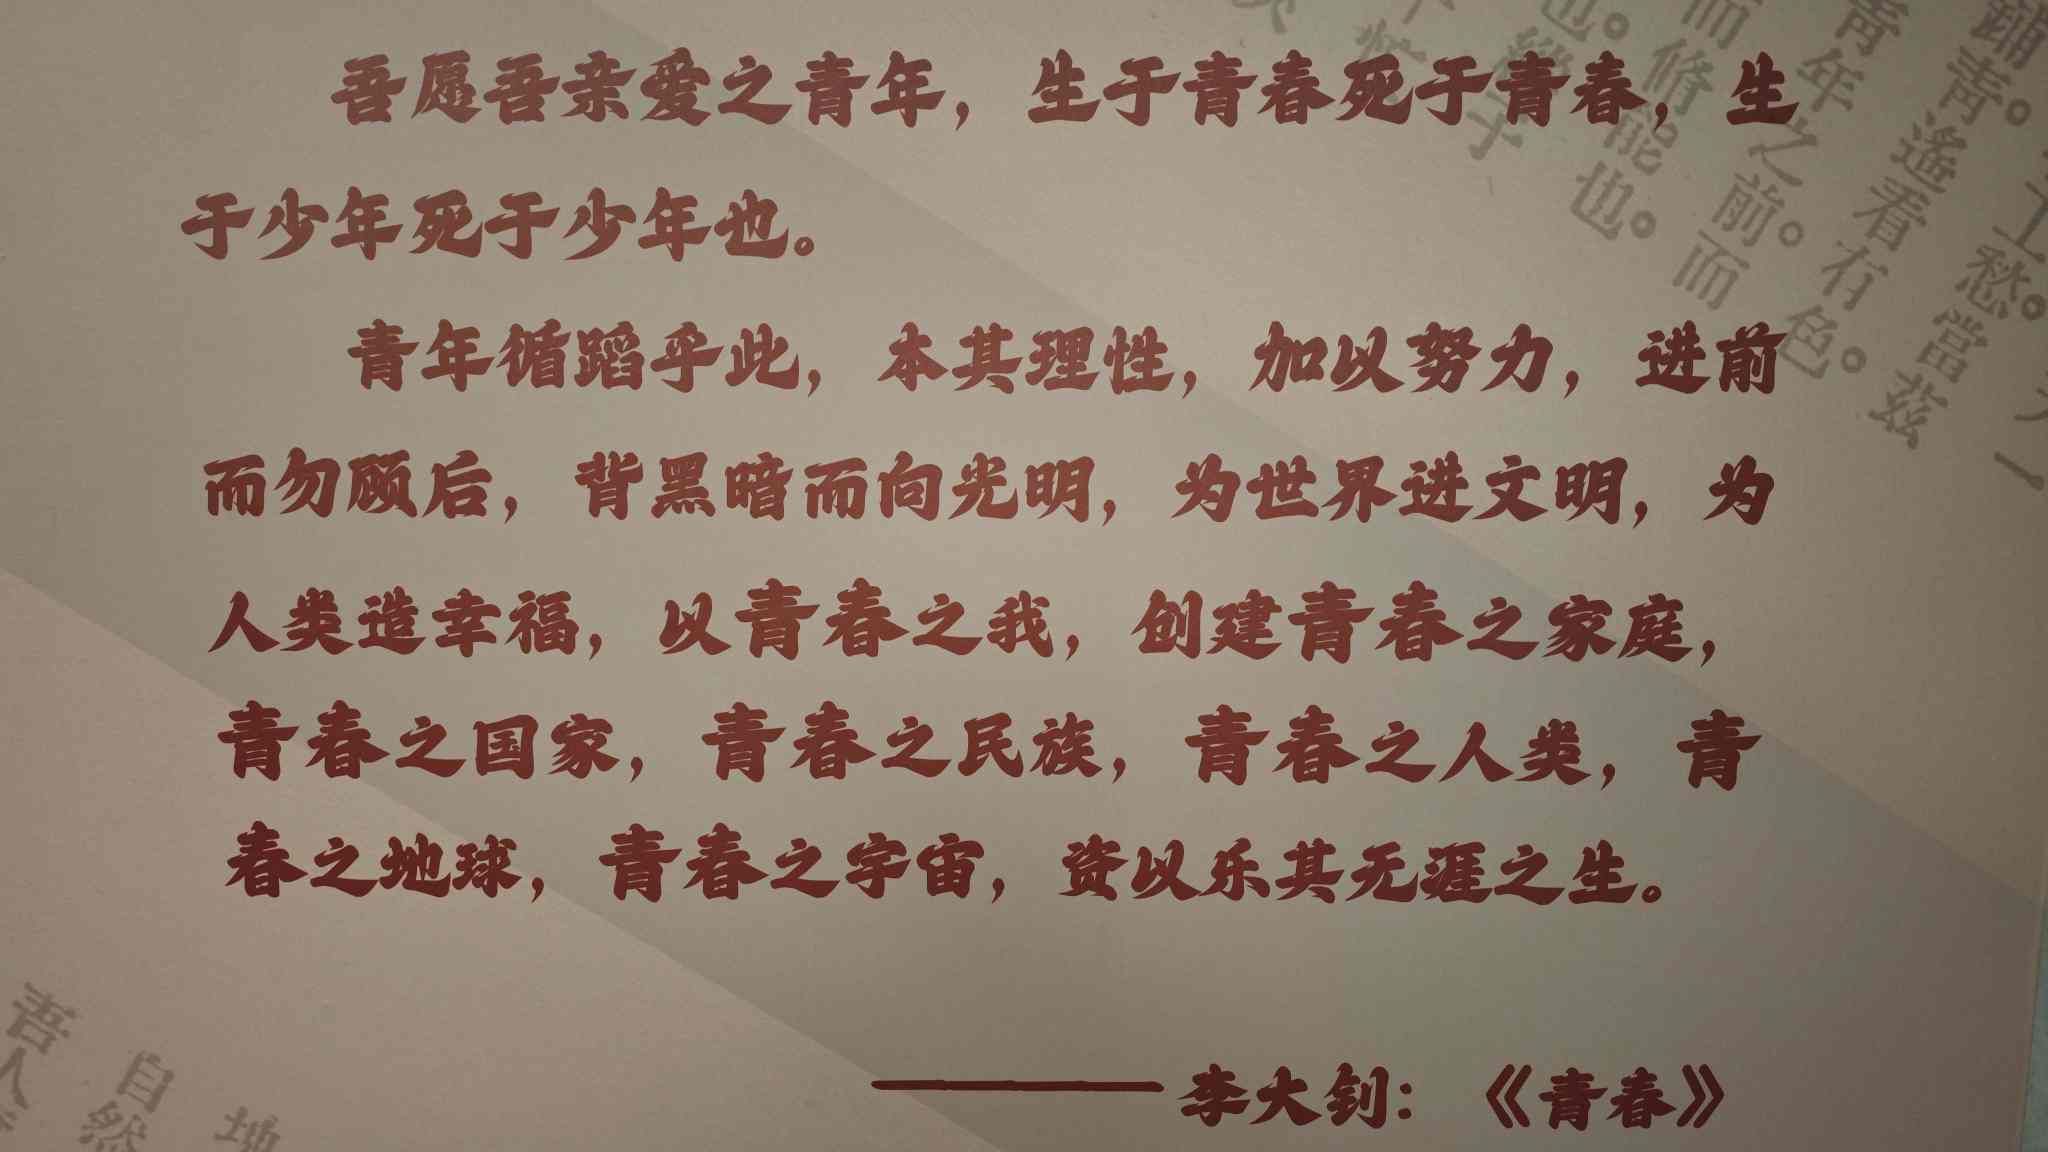 吾愿吾亲爱之青年，生于青春死于青春，生
于少年死于少年也。
青年循蹈乎此，本其理性，加以努力，进前
而勿顾后，背黑暗而向光明，为世界进文明，为
人类造幸福，以青春之我，创建青春之家庭，
青春之国家，青春之民族，青春之人类，青
春之地球，青春之宇宙，资以乐其无涯之生。
——李大钊：《青春》
鋪青。
遙看
愁。當茲
青年之前。而
有色。
而修能也。
也。
吾人
自然
地